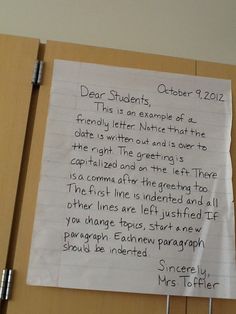 October 9, 2012
Dear Students,
This is an example of a
friendly letter. Notice that the
date is written out and is over to
the right. The greeting is
capitalized and on the left. There
is a comma after the greeting too.
The first line is indented and all
other lines are left justified. If
you change topics, start a new
paragraph. Each new paragraph
should be indented.
Sincerely,
Mrs. Toffler